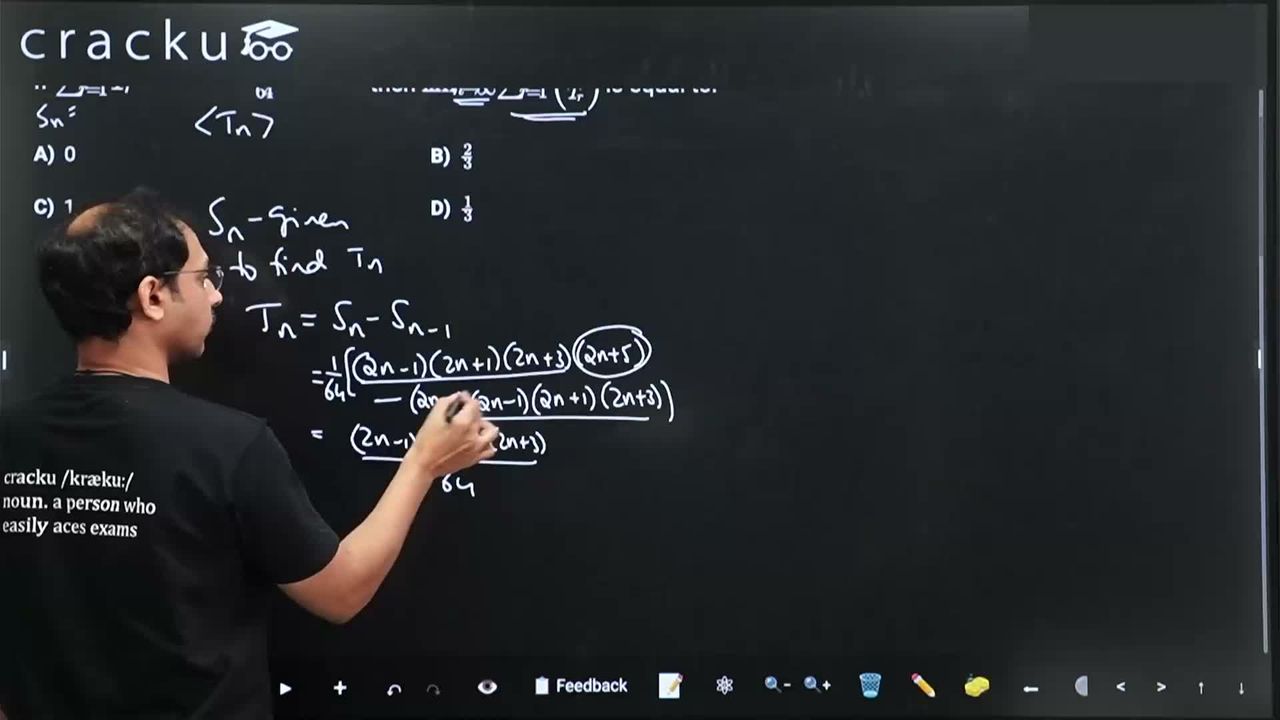 cracku
is equal to:
Sn =
<Tn>
A) 0
B) 2/3
C) 1
D) 1/3
Sn - given
to find Tn
Tn = Sn - Sn-1
= 1/64 [(2n-1)(2n+1)(2n+3)(2n+5)
- (2n-1)(2n+1)(2n+3)]
= (2n-1) (2n+3)
64
cracku /kræku:/
noun. a person who
easily aces exams
Feedback